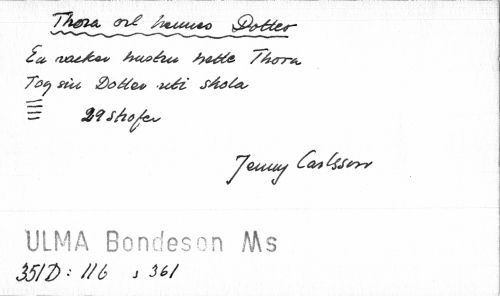 Thora och hennes Dotter
En vacker hustru hette Thora
Tog sin Dotter uti skola
29 strofer
Jenny Carlsson
ULMA Bondeson Ms
351D: 116 s 361